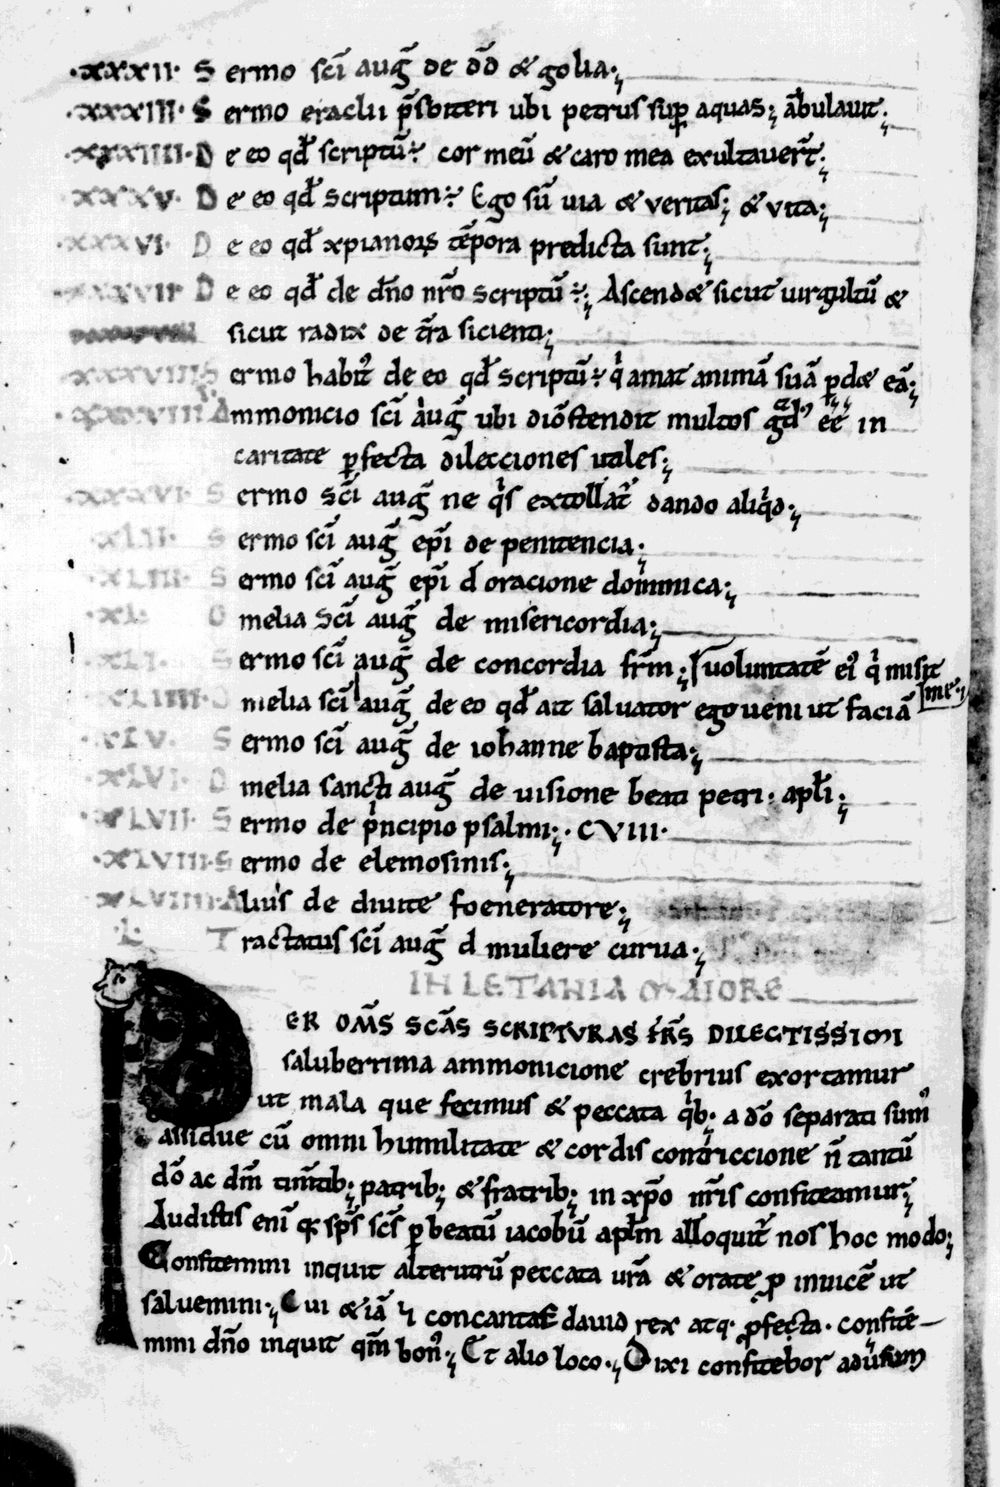 ·XXXII· Sermo sc̄i aug̃ de dd̄ & golia·;
·XXXIII· Sermo eraclii p̄sbiteri ubi petrus sup̱ aquas; ābulauit·;
·XXXIIII· De eo qđ scriptū·: cor meū & caro mea exultauer̄t·;
·XXXV· De eo qđ scriptum·: Ego sū uia & veritas; & vita·;
·XXXVI· De eo qđ xpianoꝝ tēpora predicta sunt·;
·XXXVII· De eo qđ de dn̄o nr̄o scriptū·:; Ascendæ sicut uirgultū &
sicut radix de t̄ra sicienti·;
XXXVIIII Sermo habit᷒ de eo qđ scriptū·: qͥ amat animā suā ꝑdæ eā·;
XXXVIII Ammonicio sc̄i aug̃ ubi diōstendit multos ee̅ in
caritate ꝑfecta dilecciones utiles·;
Sermo sc̄i aug̃ ne qͥs extollat̄ dando aliqͥd·;
·XLII· Sermo sc̄i aug̃ ep̄i de penitencia·;
·XLIII· Sermo sc̄i aug̃ ep̄i đ oracione dominica·;
·XL· Omelia sc̄i aug̃ de misericordia·;
·XLI· Sermo sc̄i aug̃ de concordia fr̄m·; uoluntatē ei᷒ qͥ misit
·XLIIII· Omelia sc̄i aug̃ de eo qđ ait saluator ego ueni ut faciā me·;
·XLV· Sermo sc̄i aug̃ de iohanne baptista·;
·XLVI· Omelia sancti aug̃ de uisione beati petri· apl̄i·;
·XLVII· Sermo de pͥncipio psalmi·;· CVIII·
·XLVIII· Sermo de elemosinis·;
·XLVIIII· Alius de diuite foeneratore·;
·L· Tractatus sc̄i aug̃ đ muliere curua·;
IN LETANIA MAIORE
PER OM̄S SCĀS SCRIPTVRAS FR̄S DILECTISSIMI
saluberrima ammonicione crebrius exortamur
ut mala que fecimus & peccata qͥb; a dō separati sum᷒
assidue cū omni humilitate & cordis contriccione n̄ tantū
dō ac dm̄ tim̄tib; patrib; & fratrib; in xp̄o nr̄is confiteamur·;
Audistis eni̅ qͥ sp̄s sc̄s ꝑ beatū iacobū apl̄m alloquit̄ nos hoc modo·;
Confitemini inquit alterutrū peccata ur̄a & orate ꝓ inuicē ut
saluemini·; Cui &iā concanta& dauid rex atq· ꝓfecta· confite–
mini dn̄o inquit qm̄ bon᷒·; Et alio loco·; Dixi confitebor adūsum